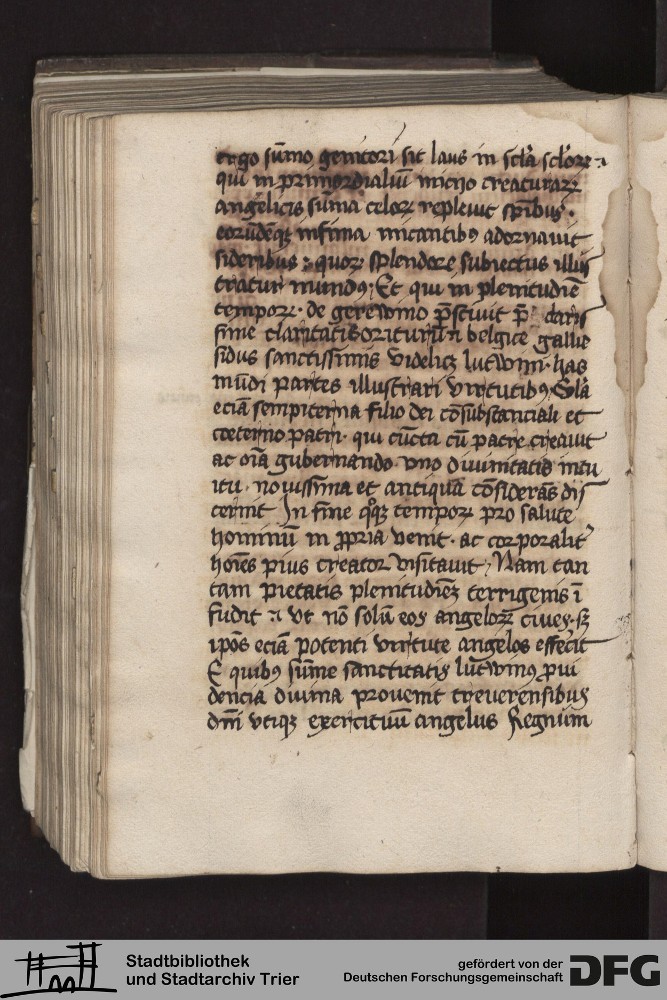 ergo sūmo genitori sit laus in scl̄a scl̄oꝝ
qui in primordialiū inicijo creaturaꝝ
angelicis sūma celoꝝ repleuit sp̄ibus ·
eorūdēqꝫ infima micantibꝰ adornauit
sideribus : quoꝝ splendore subiectus illus
tratur mundꝰ ; Et qui in plenitudīe
tempoꝝ · de gerewino p̄stiuit claris
sidus sanctissimis videlicꝫ lutwini · has
mūdi partes illustrari virtutibꝰ , Gl̄a
eciā sempiterna filio dei cōsubstanciali et
coeterno patri · qui cūcta cū patre creauit
ac oīa gubernando vno diuinitatis intu
itu · nouissima et antiqua cōsiderās dis
cernit In fine qͦqꝫ tempoꝝ pro salute
hominū in ꝓpria venit · ac corporalit̄
hoīes pius creator visitauit , Nam tan
tam pietatis plenitudīeꝫ terrigenis ī
fudit vt nō solū eos angeloꝝ ciues · sꝫ
ip̄os eciā potenti virtute angelos effecit
E quibꝰ sūme sanctitatis lutwinꝰ ꝓui
dencia diuina prouenit treuerensibus
dn̄i vtiqꝫ exercituū angelus Regnum
Stadtbibliothek
und Stadtarchiv Trier
gefördert von der
Deutschen Forschungsgemeinschaft
DFG